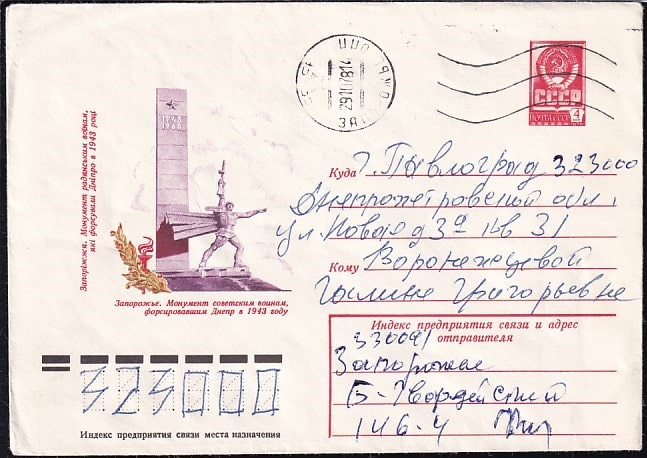 Запоріжжя. Монумент радянським воїнам,
які форсували Дніпро в 1943 році
Запорожье. Монумент советским воинам,
форсировавшим Днепр в 1943 году
СССР
ПОЧТА СССР
4
Куда г. Павлоград 323000
Днепропетровской обл.
ул. Новая д 3а кв 31
Кому
Галине Григорьевне
Индекс предприятия связи и адрес
отправителя
330091
Запорожье
Б-Гвардейский
146-4
323000
Индекс предприятия связи места назначения